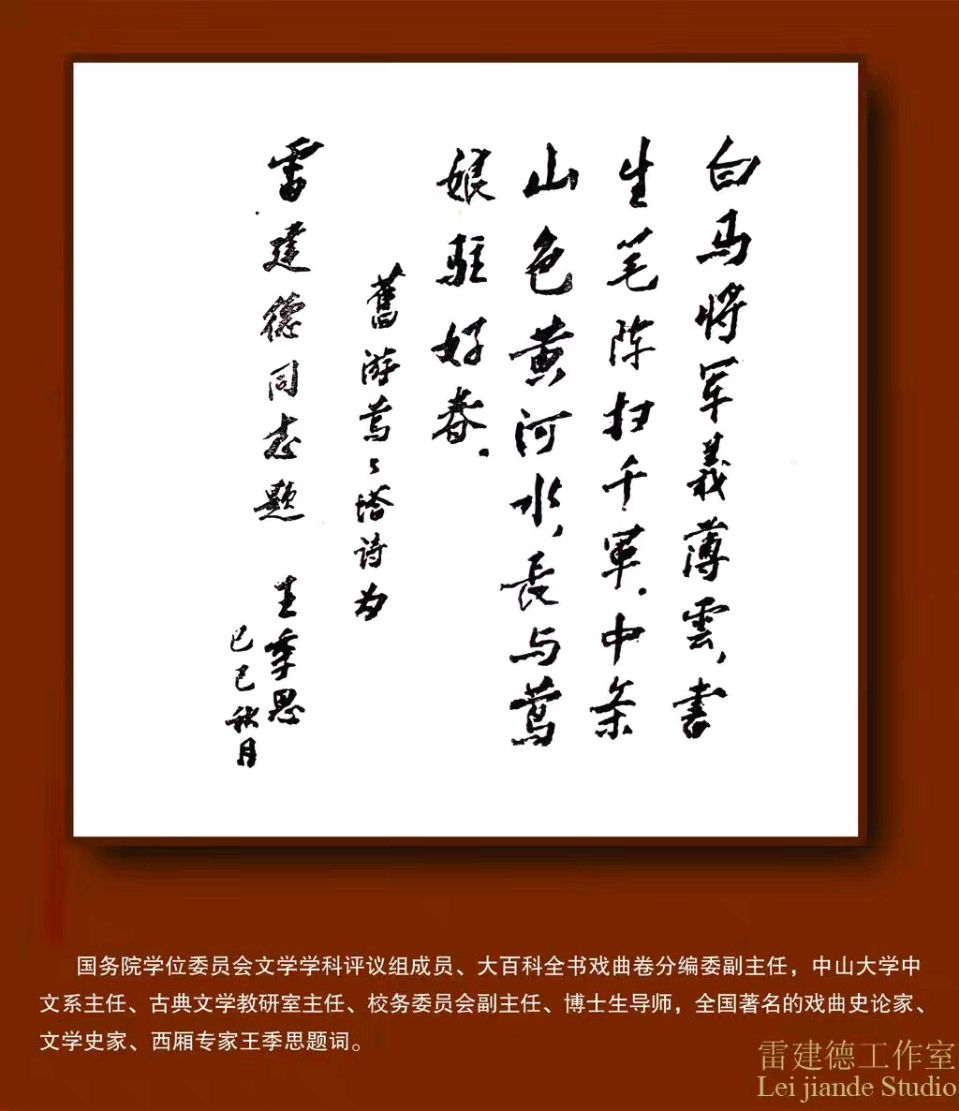 白马将军義薄雲，書
生笔陈扫千軍．中条
山色黄河水，長与莺
娘駐好春．
舊游莺〻塔诗为
雷建德同志题
王季思
己巳秋月
国务院学位委员会文学学科评议组成员、大百科全书戏曲卷分编委副主任，中山大学中
文系主任、古典文学教研室主任、校务委员会副主任、博士生导师，全国著名的戏曲史论家、
文学史家、西厢专家王季思题词。
雷建德工作室
Lei jiande Studio